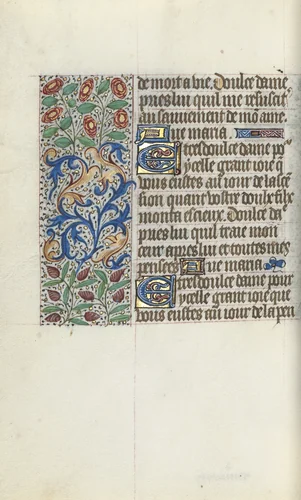 de mort a vie. Doulce dame
pries lui quil me resuscit
au sauuement de mo ame.
Aue maria.
Et tresdoulce dame po
ycelle grant ioie q
vous eustes au iour de lasce
sion quant vostre doulx filx
monta es cieux. Doulce da
pries lui quil traie mon
cuer a mes lui et toutes mes
pensees Aue maria
E tresdoulce dame pour
ycelle grant ioie que
vous eustes au iour de la pen